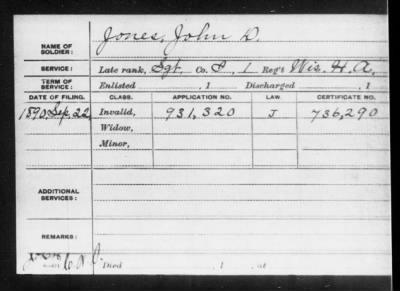 NAME OF SOLDIER: Jones, John D.
SERVICE: Late rank, Sgt. Co. I, 1 Reg't Wis. H. A.
TERM OF SERVICE: Enlisted , 1 Discharged , 1
DATE OF FILING. CLASS. APPLICATION NO. LAW. CERTIFICATE NO.
1890, Sep. 22 Invalid, 931,320 J 736,290
Widow,
Minor,
ADDITIONAL SERVICES:
REMARKS:
Died , 1 , at